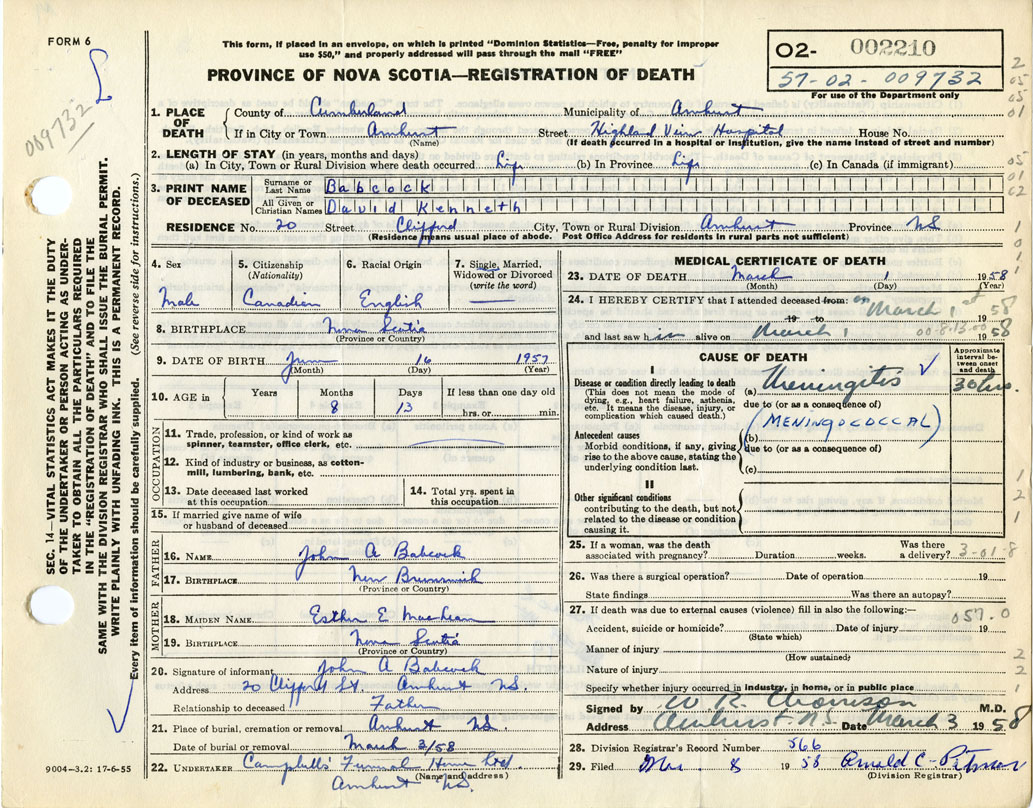 FORM 6
This form, if placed in an envelope, on which is printed "Dominion Statistics—Free, penalty for improper
use $50," and properly addressed will pass through the mail "FREE"
PROVINCE OF NOVA SCOTIA—REGISTRATION OF DEATH
O2- 002210
57-02-009732
For use of the Department only
009732
SEC. 14—VITAL STATISTICS ACT MAKES IT THE DUTY
OF THE UNDERTAKER OR PERSON ACTING AS UNDER-
TAKER TO OBTAIN ALL THE PARTICULARS REQUIRED
IN THE "REGISTRATION OF DEATH" AND TO FILE THE
SAME WITH THE DIVISION REGISTRAR WHO SHALL ISSUE THE BURIAL PERMIT.
WRITE PLAINLY WITH UNFADING INK. THIS IS A PERMANENT RECORD.
Every item of information should be carefully supplied. (See reverse side for instructions.)
1. PLACE OF DEATH
County of Cumberland Municipality of Amherst
If in City or Town Amherst Street Highland View Hospital House No.
(Name) (If death occurred in a hospital or institution, give the name instead of street and number)
2. LENGTH OF STAY (in years, months and days)
(a) In City, Town or Rural Division where death occurred Life (b) In Province Life (c) In Canada (if immigrant)
3. PRINT NAME OF DECEASED
Surname or Last Name Babcock
All Given or Christian Names David Kenneth
RESIDENCE No. 20 Street Clifford City, Town or Rural Division Amherst Province NS
(Residence means usual place of abode. Post Office Address for residents in rural parts not sufficient)
4. Sex
Male
5. Citizenship
(Nationality)
Canadian
6. Racial Origin
English
7. Single, Married,
Widowed or Divorced
(write the word)
8. BIRTHPLACE Nova Scotia
(Province or Country)
9. DATE OF BIRTH June 16 1957
(Month) (Day) (Year)
10. AGE in
Years Months Days If less than one day old
8 13 hrs. or min.
OCCUPATION
11. Trade, profession, or kind of work as
spinner, teamster, office clerk, etc.
12. Kind of industry or business, as cotton-
mill, lumbering, bank, etc.
13. Date deceased last worked
at this occupation
14. Total yrs. spent in
this occupation
15. If married give name of wife
or husband of deceased
FATHER
16. NAME John A Babcock
17. BIRTHPLACE New Brunswick
(Province or Country)
MOTHER
18. MAIDEN NAME Esther E MacLean
19. BIRTHPLACE Nova Scotia
(Province or Country)
20. Signature of informant John A Babcock
Address 20 Clifford St. Amherst NS.
Relationship to deceased Father
21. Place of burial, cremation or removal Amherst NS.
Date of burial or removal March 3/58
22. UNDERTAKER Campbells' Funeral Home Ltd.
(Name and address)
Amherst NS.
9004—3.2: 17-6-55
MEDICAL CERTIFICATE OF DEATH
23. DATE OF DEATH March 1 1958
(Month) (Day) (Year)
24. I HEREBY CERTIFY that I attended deceased from: on
March 1 1958
19 to
and last saw him alive on March 1 1958
CAUSE OF DEATH
Approximate
interval be-
tween onset
and death
I
Disease or condition directly leading to death
(This does not mean the mode of
dying, e.g., heart failure, asthenia,
etc. It means the disease, injury, or
complication which caused death.)
(a) Meningitis 30 hrs.
due to (or as a consequence of)
Antecedent causes
Morbid conditions, if any, giving
rise to the above cause, stating the
underlying condition last.
(b) (MENINGOCOCCAL)
due to (or as a consequence of)
(c)
II
Other significant conditions
contributing to the death, but not
related to the disease or condition
causing it.
25. If a woman, was the death
associated with pregnancy? Duration weeks. Was there
a delivery? 3-01-8
26. Was there a surgical operation? Date of operation 19
State findings Was there an autopsy?
27. If death was due to external causes (violence) fill in also the following:—
057.0
Accident, suicide or homicide? Date of injury 19
(State which)
Manner of injury
(How sustained)
Nature of injury
Specify whether injury occurred in industry, in home, or in public place
Signed by W. R. Thomson M.D.
Address Amherst. N.S. Date March 3 1958
28. Division Registrar's Record Number 566
29. Filed Mar. 8 1958 Arnold C. Pitman
(Division Registrar)